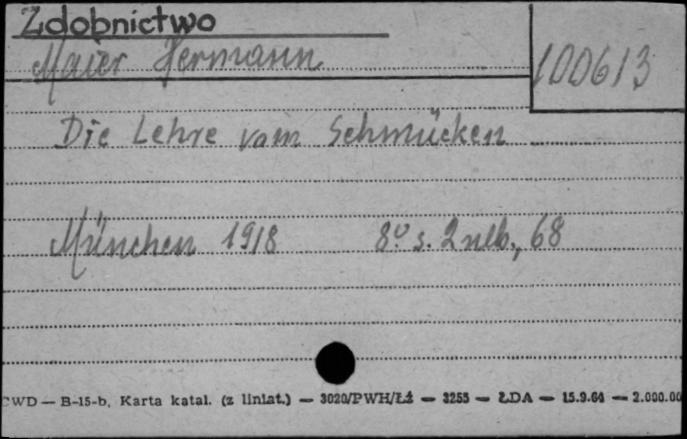 Zdobnictwo
Maier Hermann
100613
Die Lehre vom Schmücken
München 1918 8º s. 2 nlb., 68
CWD — B-15-b. Karta katal. (z liniat.) — 3020/PWH/Łź — 3255 — ŁDA — 15.9.64 — 2.000.00